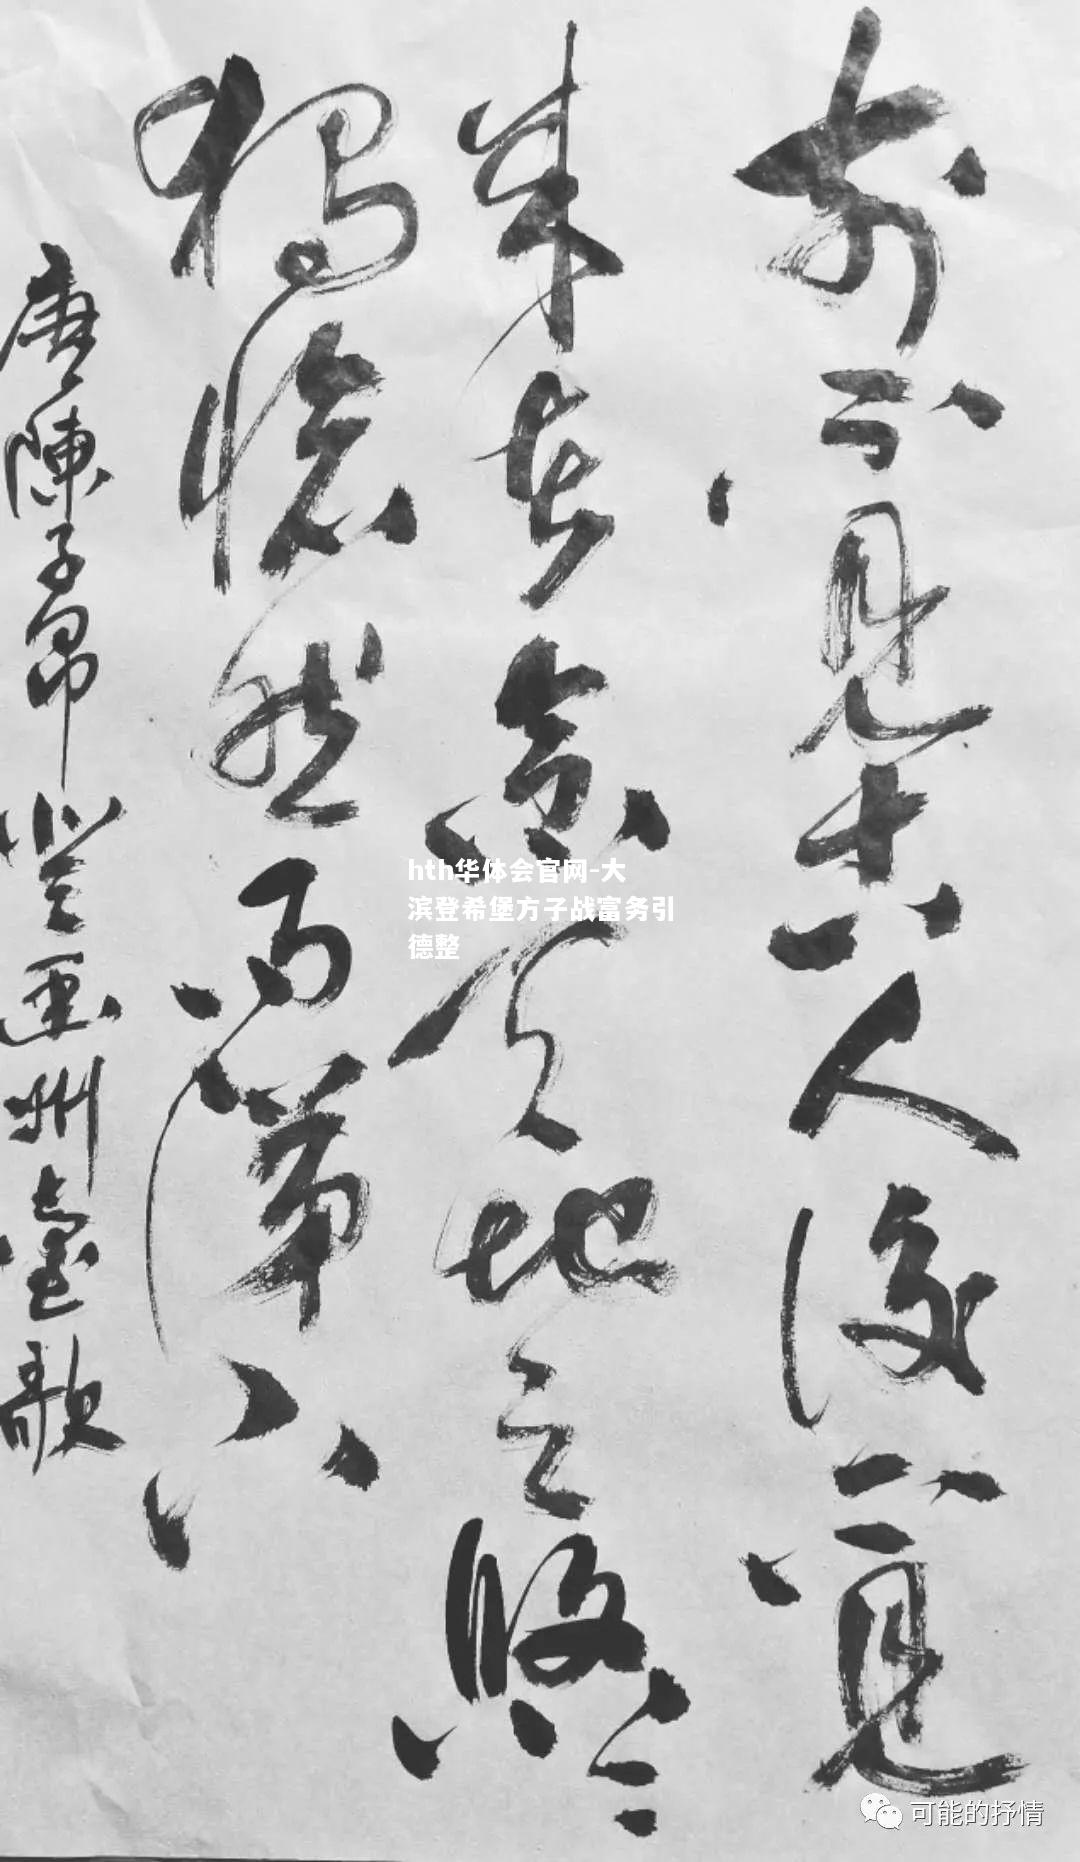 前不見古人後不見
来者念天地之悠々
獨愴然而涕下
唐陳子昂登幽州臺歌
hth华体会官网-大
滨登希堡方子战富务引
德整
可能的抒情